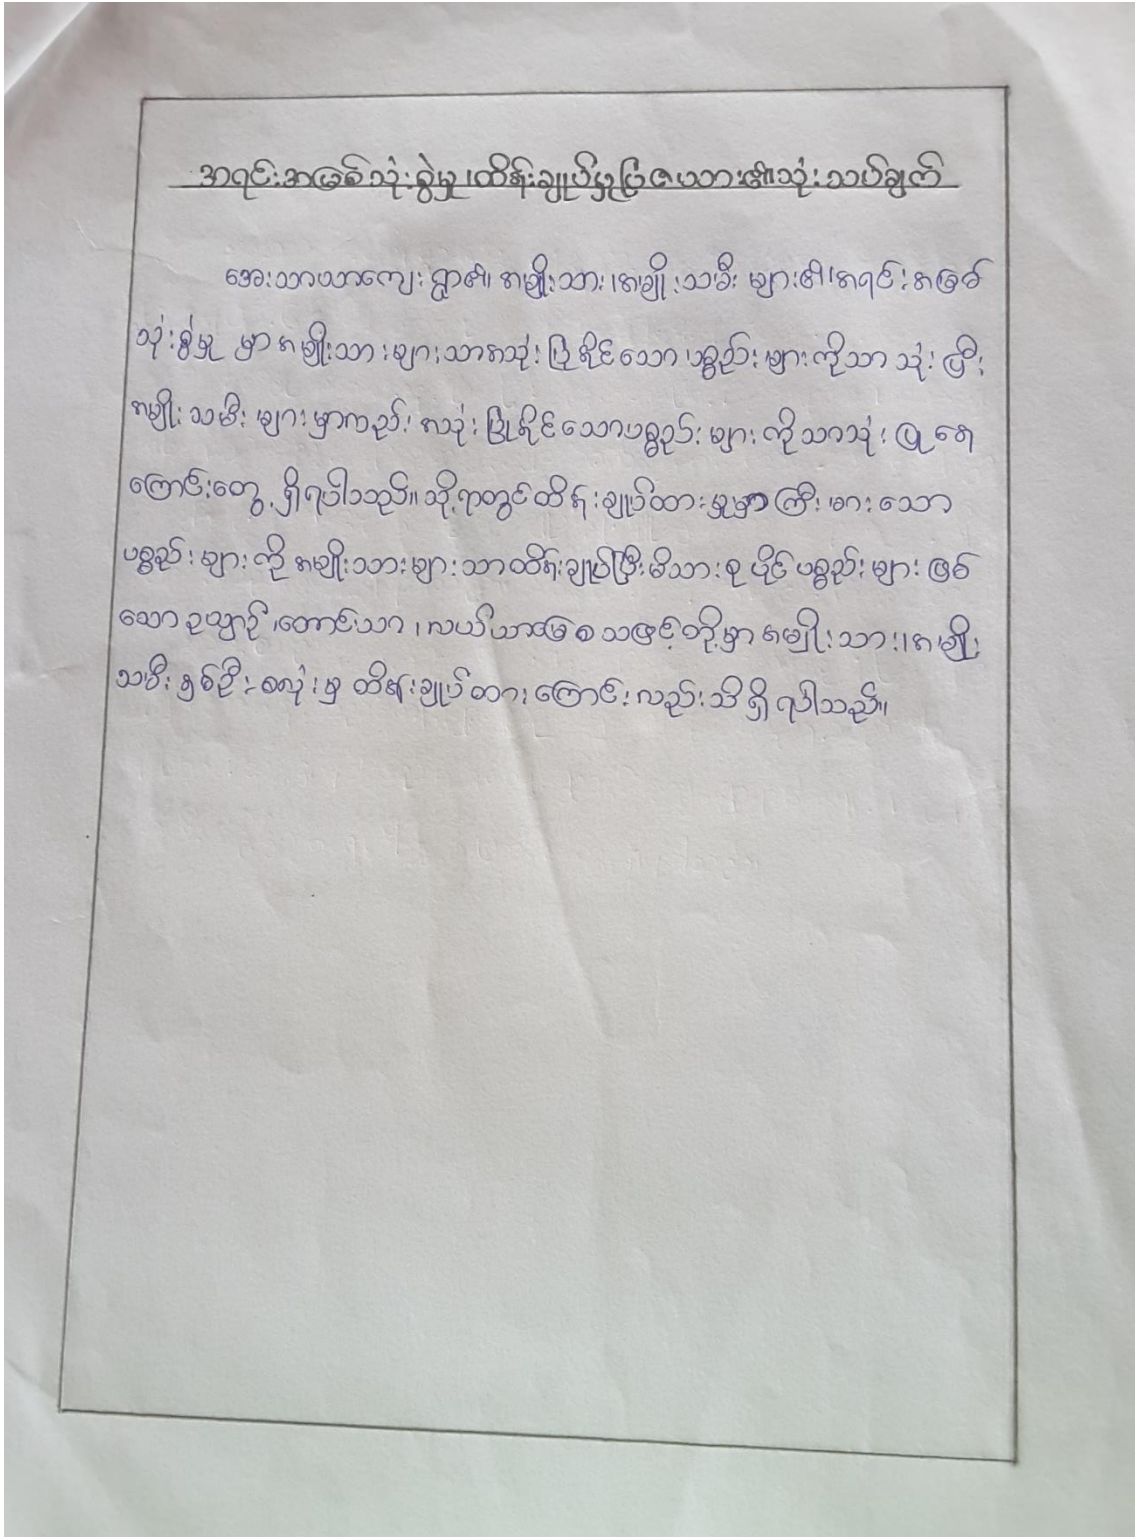 အရင်းအမြစ်သုံးစွဲမှု၊ထိန်းချုပ်မှုပြဇယား၏သုံးသပ်ချက်
အေးသာယာကျေးရွာ၏ အမျိုးသား၊အမျိုးသမီး များ၏၊အရင်းအမြစ်
သုံးစွဲမှု မှာ အမျိုးသားများသာအသုံးပြုနိုင်သော ပစ္စည်းများကိုသာ သုံးပြီး
အမျိုးသမီးများမှာကည်း အသုံးပြုနိုင်သောပစ္စည်းများကိုသာသုံးပြုနေ
ကြောင်းတွေ့ရှိရပါသည်။ သို့ရာတွင်ထိန်းချုပ်ထားမှုမှာကြီးမားသော
ပစ္စည်းများကို အမျိုးသားများသာထိန်းချုပ်ပြီးမိသားစုပိုင်ပစ္စည်းများဖြစ်
သော ဥယျာဉ်၊တောင်ယာ၊လယ်ယာမြေစသဖြင့်တို့မှာ အမျိုးသား၊အမျိုး
သမီးနှစ်ဦးစလုံးမှ ထိန်းချုပ်ထားကြောင်းလည်းသိရှိရပါသည်။